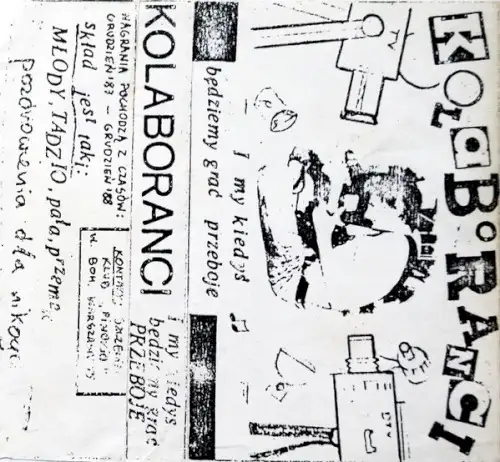 KOLABORANCI
TV
TV
I my kiedyś
będziemy grać przeboje
KOLABORANCI
i my kiedyś
będziemy grać
PRZEBOJE
NAGRANIA POCHODZĄ Z CZASÓW:
GRUDZIEŃ '87 – GRUDZIEŃ '88
Skład jest taki:
MŁODY, TADZIO, pała, przemek
pozdrowienia dla
KONTAKT:
KLUB "PINOKIO"
BOH. WARSZAWY